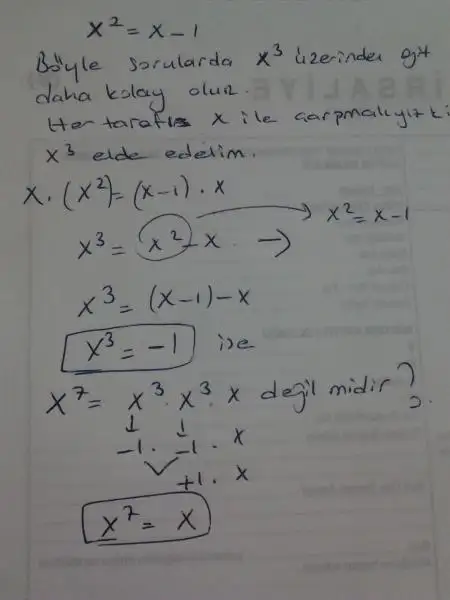 x² = x - 1
Böyle sorularda x³ üzerinden git
daha kolay olur.
Her tarafı x ile çarpmalıyız ki
x³ elde edelim.
x · (x²) = (x-1) · x
x³ = x² - x · → x² = x - 1
x³ = (x-1) - x
x³ = -1 ise
x⁷ = x³ · x³ · x değil midir?
↓ ↓
-1 · -1 · x
+1 · x
x⁷ = x